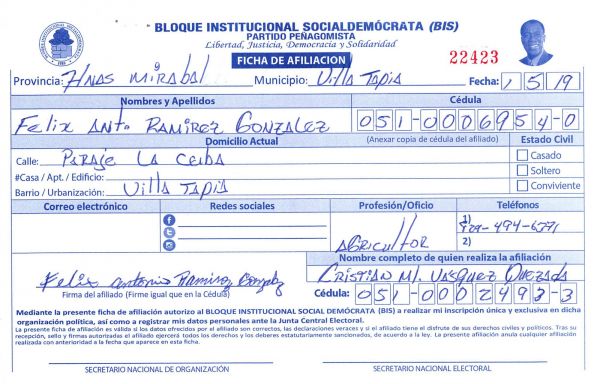 BLOQUE INSTITUCIONAL SOCIALDEMÓCRATA (BIS)
PARTIDO PEÑAGOMISTA
Libertad, Justicia, Democracia y Solidaridad
FICHA DE AFILIACION
22423
Provincia: Hnas Mirabal Municipio: Villa Tapia Fecha: 1/5/19
Nombres y Apellidos Cédula
Felix Anto Ramirez Gonzalez 051-0006954-0
Domicilio Actual (Anexar copia de cédula del afiliado) Estado Civil
Calle: Paraje La Ceiba Casado
#Casa / Apt. / Edificio: Soltero
Barrio / Urbanización: Villa Tapia Conviviente
Correo electrónico Redes sociales Profesión/Oficio Teléfonos
Agricultor
1)
2)
Nombre completo de quien realiza la afiliación
Felix Antonio Ramirez Gonzalez Cristian Ml. Vasquez Quezada
Firma del afiliado (Firme igual que en la Cédula) Cédula: 051-0002493-3
Mediante la presente ficha de afiliación autorizo al BLOQUE INSTITUCIONAL SOCIAL DEMÓCRATA (BIS) a realizar mi inscripción única y exclusiva en dicha
organización política, así como a registrar mis datos personales ante la Junta Central Electoral.
La presente ficha de afiliación es válida si los datos ofrecidos por el afiliado son correctos, las declaraciones veraces y si el afiliado tiene el disfrute de sus derechos civiles y políticos. Tras su
recepción, sello y firmas autorizadas el afiliado ejercerá todos los derechos y los deberes estatutariamente sancionados, de acuerdo a la ley. La presente afiliación anula cualquier afiliación
realizada con anterioridad a la fecha que aparece en esta ficha.
SECRETARIO NACIONAL DE ORGANIZACIÓN SECRETARIO NACIONAL ELECTORAL